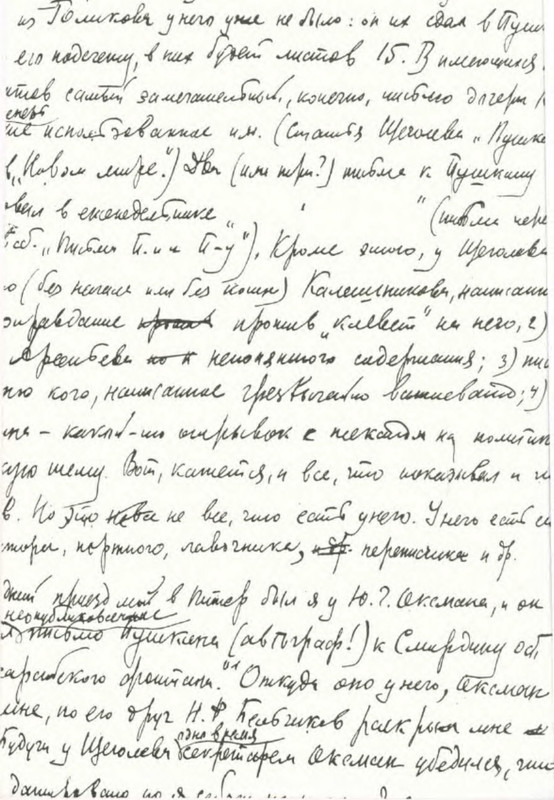 из Голикова у него уже не было: он их сдал в Пуш
его подсчету, в них будет листов 15. В имеющихся
нтов самый замечательный, конечно, письмо дочери
ие использованное им. (Статья Щеголева „Пушки
в „Новом мире".) Два (или три?) письма к Пушкину
в еженедельнике " " (письма
сб. „Письма П. и к П-у"). Кроме этого, у Щеголева
о (без начала или без конца) Калашникова, написанн
оправдание против „клевет" на него, 2)
Арсентьева к непонятного содержания; 3) пис
кого, написанное чрезвычайно витиевато; 4)
какой-то отрывок с текстом на политич
кую тему. Вот, кажется, и все, что показывал и
в. Но это не все, что есть у него. У него есть
тора, портного, лавочника, переписчика и др.
приезд мой в Питер был я у Ю. Г. Оксмана, и он
неопубликованное
письмо Пушкина (автограф!) к Смирдину от
арабского фонтана." Откуда оно у него, Оксман
мне, но его друг Н. Ф. Бельчиков раскрыл мне
одно время
Будучи у Щеголева секретарем Оксман убедился, что